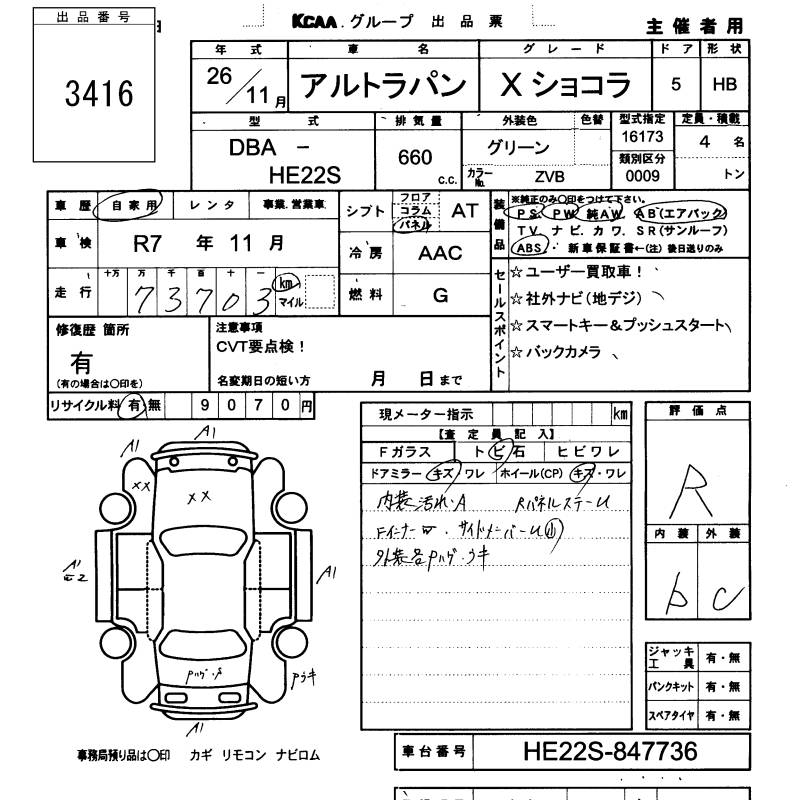 出品番号
3416
KCAA.グループ 出品票
主催者用
年式 車名 グレード ドア 形状
26/11月 アルトラパン X ショコラ 5 HB
型式 排気量 外装色 色替 型式指定 定員・積載
DBA - HE22S 660 c.c. グリーン 16173 4名
カラーNo. ZVB 類別区分 0009 トン
車歴 自家用 レンタ 事業.営業車
シフト フロア コラム パネル AT
車検 R7年11月
冷房 AAC
走行 十万 万 千 百 十 一
73703 km マイル
燃料 G
装備品
※純正のみ〇印をつけて下さい。
PS. PW 純AW. AB(エアバック)
TV. ナビ. カワ. SR(サンルーフ)
ABS. 新車保証書←(注)後日送りのみ
セールスポイント
☆ユーザー買取車!
☆社外ナビ(地デジ)
☆スマートキー&プッシュスタート
☆バックカメラ
修復歴 箇所
有
(有の場合は〇印を)
注意事項
CVT要点検!
名変期日の短い方 月 日まで
リサイクル料 有・無 9070円
現メーター指示 km
【査定員記入】
Fガラス トビ石 ヒビワレ
ドアミラー キズ・ワレ ホイール(CP) キズ・ワレ
内装汚れ・A RパネルステーU
FインナーW・サイドメンバーU小
外装各Pハゲ・ウキ
評価点
R
内装 外装
b C
A1
A1
XX
XX
A1
E2
A1
Pハゲ・A
Pウキ
A1
ジャッキ工具 有・無
パンクキット 有・無
スペアタイヤ 有・無
事務局預り品は〇印 カギ リモコン ナビロム
車台番号 HE22S-847736